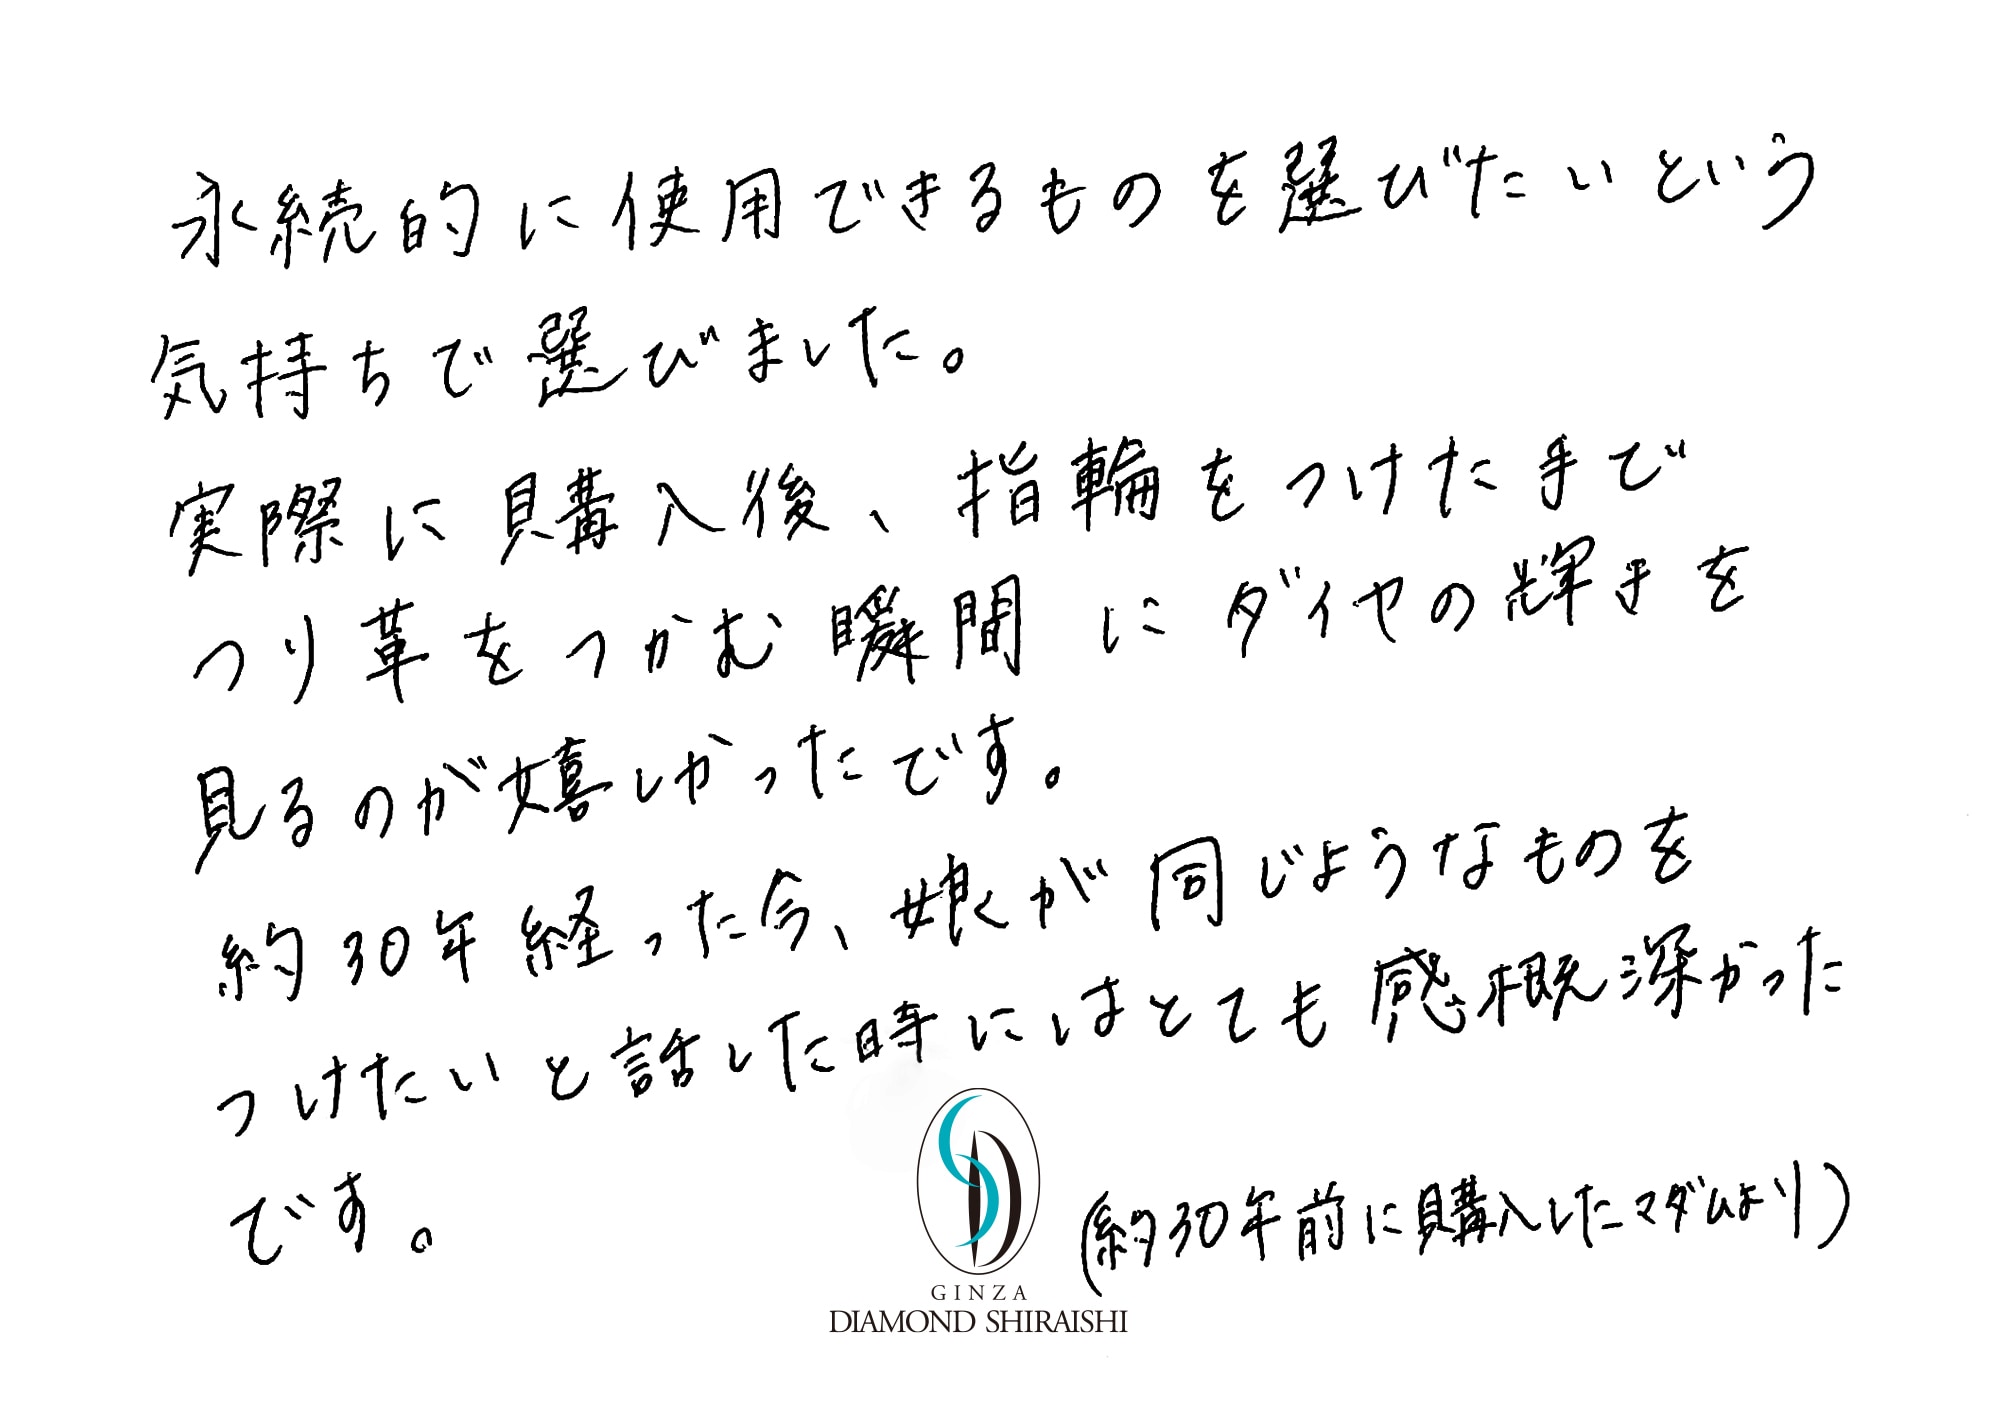 永続的に使用できるものを選びたいという
気持ちで選びました。
実際に購入後、指輪をつけた手で
つり革をつかむ瞬間にダイヤの輝きを
見るのが嬉しかったです。
約30年経った今、娘が同じようなものを
つけたいと話した時にはとても感概深かった
です。
(約30年前に購入したマダムより)
GINZA
DIAMOND SHIRAISHI